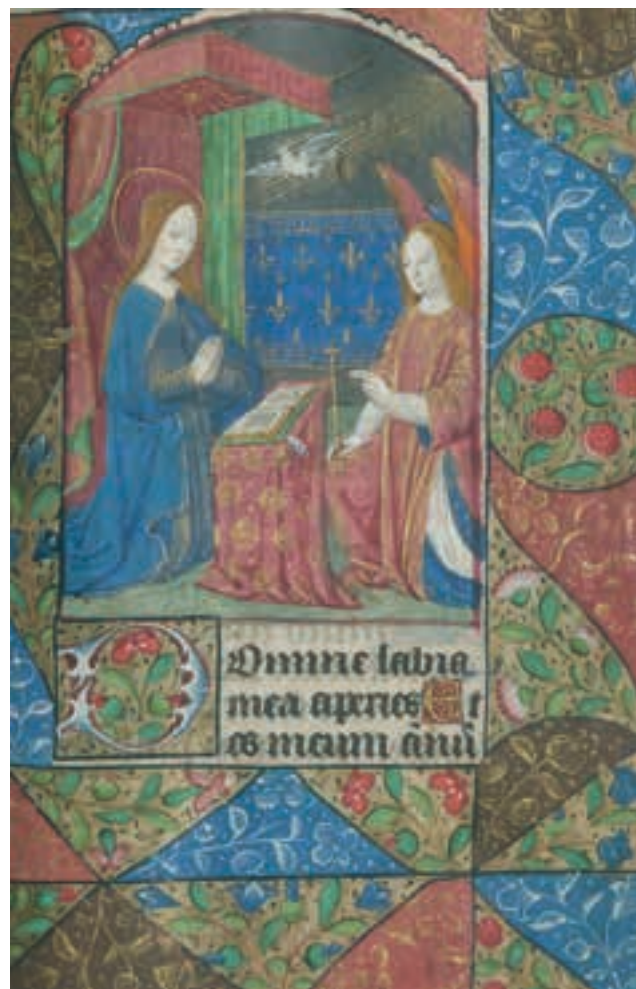 Domine labia
mea aperies Et
os meum ānū